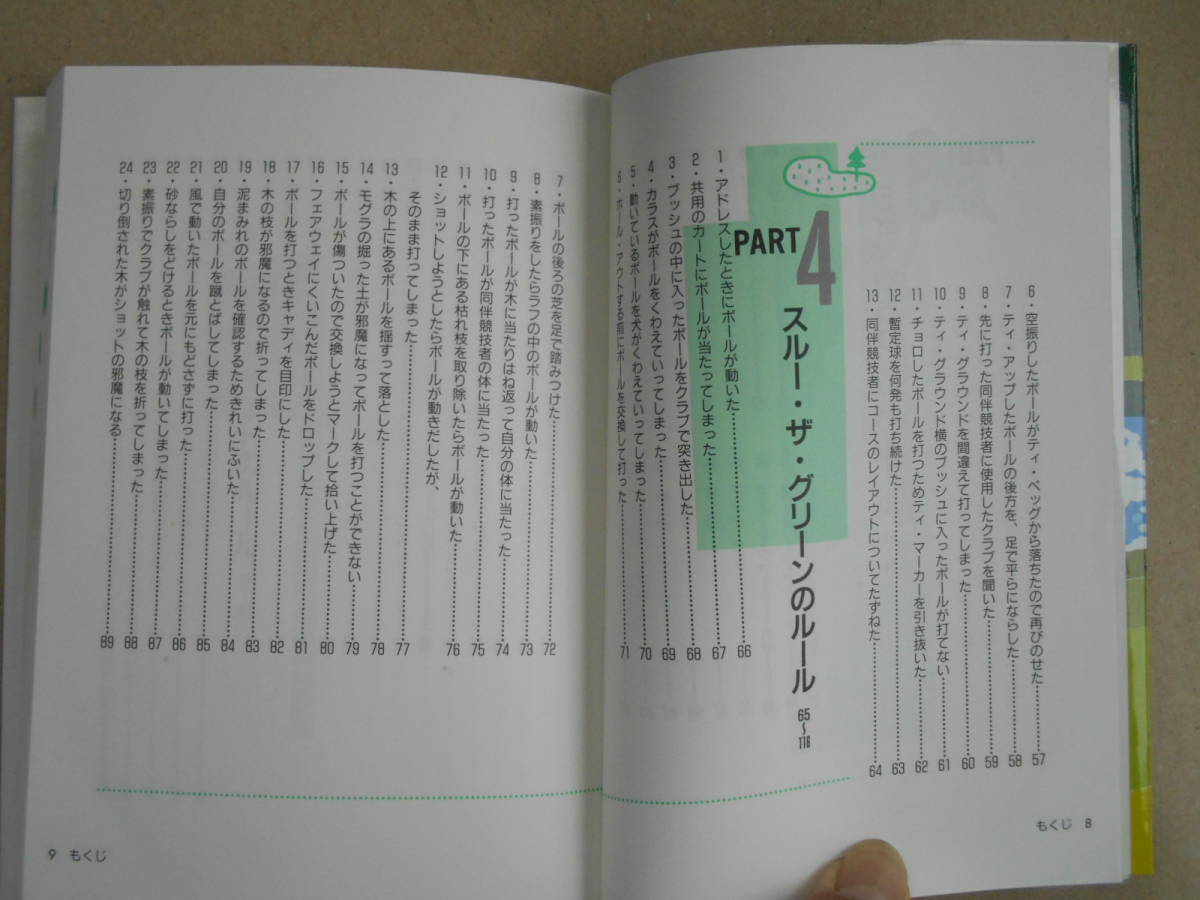 6・空振りしたボールがティ・ペッグから落ちたので再びのせた……57
7・ティ・アップしたボールの後方を、足で平らにならした……58
8・先に打った同伴競技者に使用したクラブを聞いた……59
9・ティ・グラウンドを間違えて打ってしまった……60
10・ティ・グラウンド横のブッシュに入ったボールが打てない……61
11・チョロしたボールを打つためティ・マーカーを引き抜いた……62
12・暫定球を何発も打ち続けた……63
13・同伴競技者にコースのレイアウトについてたずねた……64
PART 4
スルー・ザ・グリーンのルール 65〜116
1・アドレスしたときにボールが動いた……66
2・共用のカートにボールが当たってしまった……67
3・ブッシュの中に入ったボールをクラブで突き出した……68
4・カラスがボールをくわえていってしまった……69
5・動いているボールを犬がくわえていってしまった……70
6・ホール・アウトする前にボールを交換して打った……71
もくじ 8
7・ボールの後ろの芝を足で踏みつけた……72
8・素振りをしたらラフの中のボールが動いた……73
9・打ったボールが木に当たりはね返って自分の体に当たった……74
10・打ったボールが同伴競技者の体に当たった……75
11・ボールの下にある枯れ枝を取り除いたらボールが動いた……76
12・ショットしようとしたらボールが動きだしたが、
そのまま打ってしまった……77
13・木の上にあるボールを揺すって落とした……78
14・モグラの掘った土が邪魔になってボールを打つことができない……79
15・ボールが傷ついたので交換しようとマークして拾い上げた……80
16・フェアウェイにくいこんだボールをドロップした……81
17・ボールを打つときキャディを目印にした……82
18・木の枝が邪魔になるので折ってしまった……83
19・泥まみれのボールを確認するためきれいにふいた……84
20・自分のボールを蹴とばしてしまった……85
21・風で動いたボールを元にもどさずに打った……86
22・砂ならしをどけるときボールが動いてしまった……87
23・素振りでクラブが触れて木の枝を折ってしまった……88
24・切り倒された木がショットの邪魔になる……89
9 もくじ